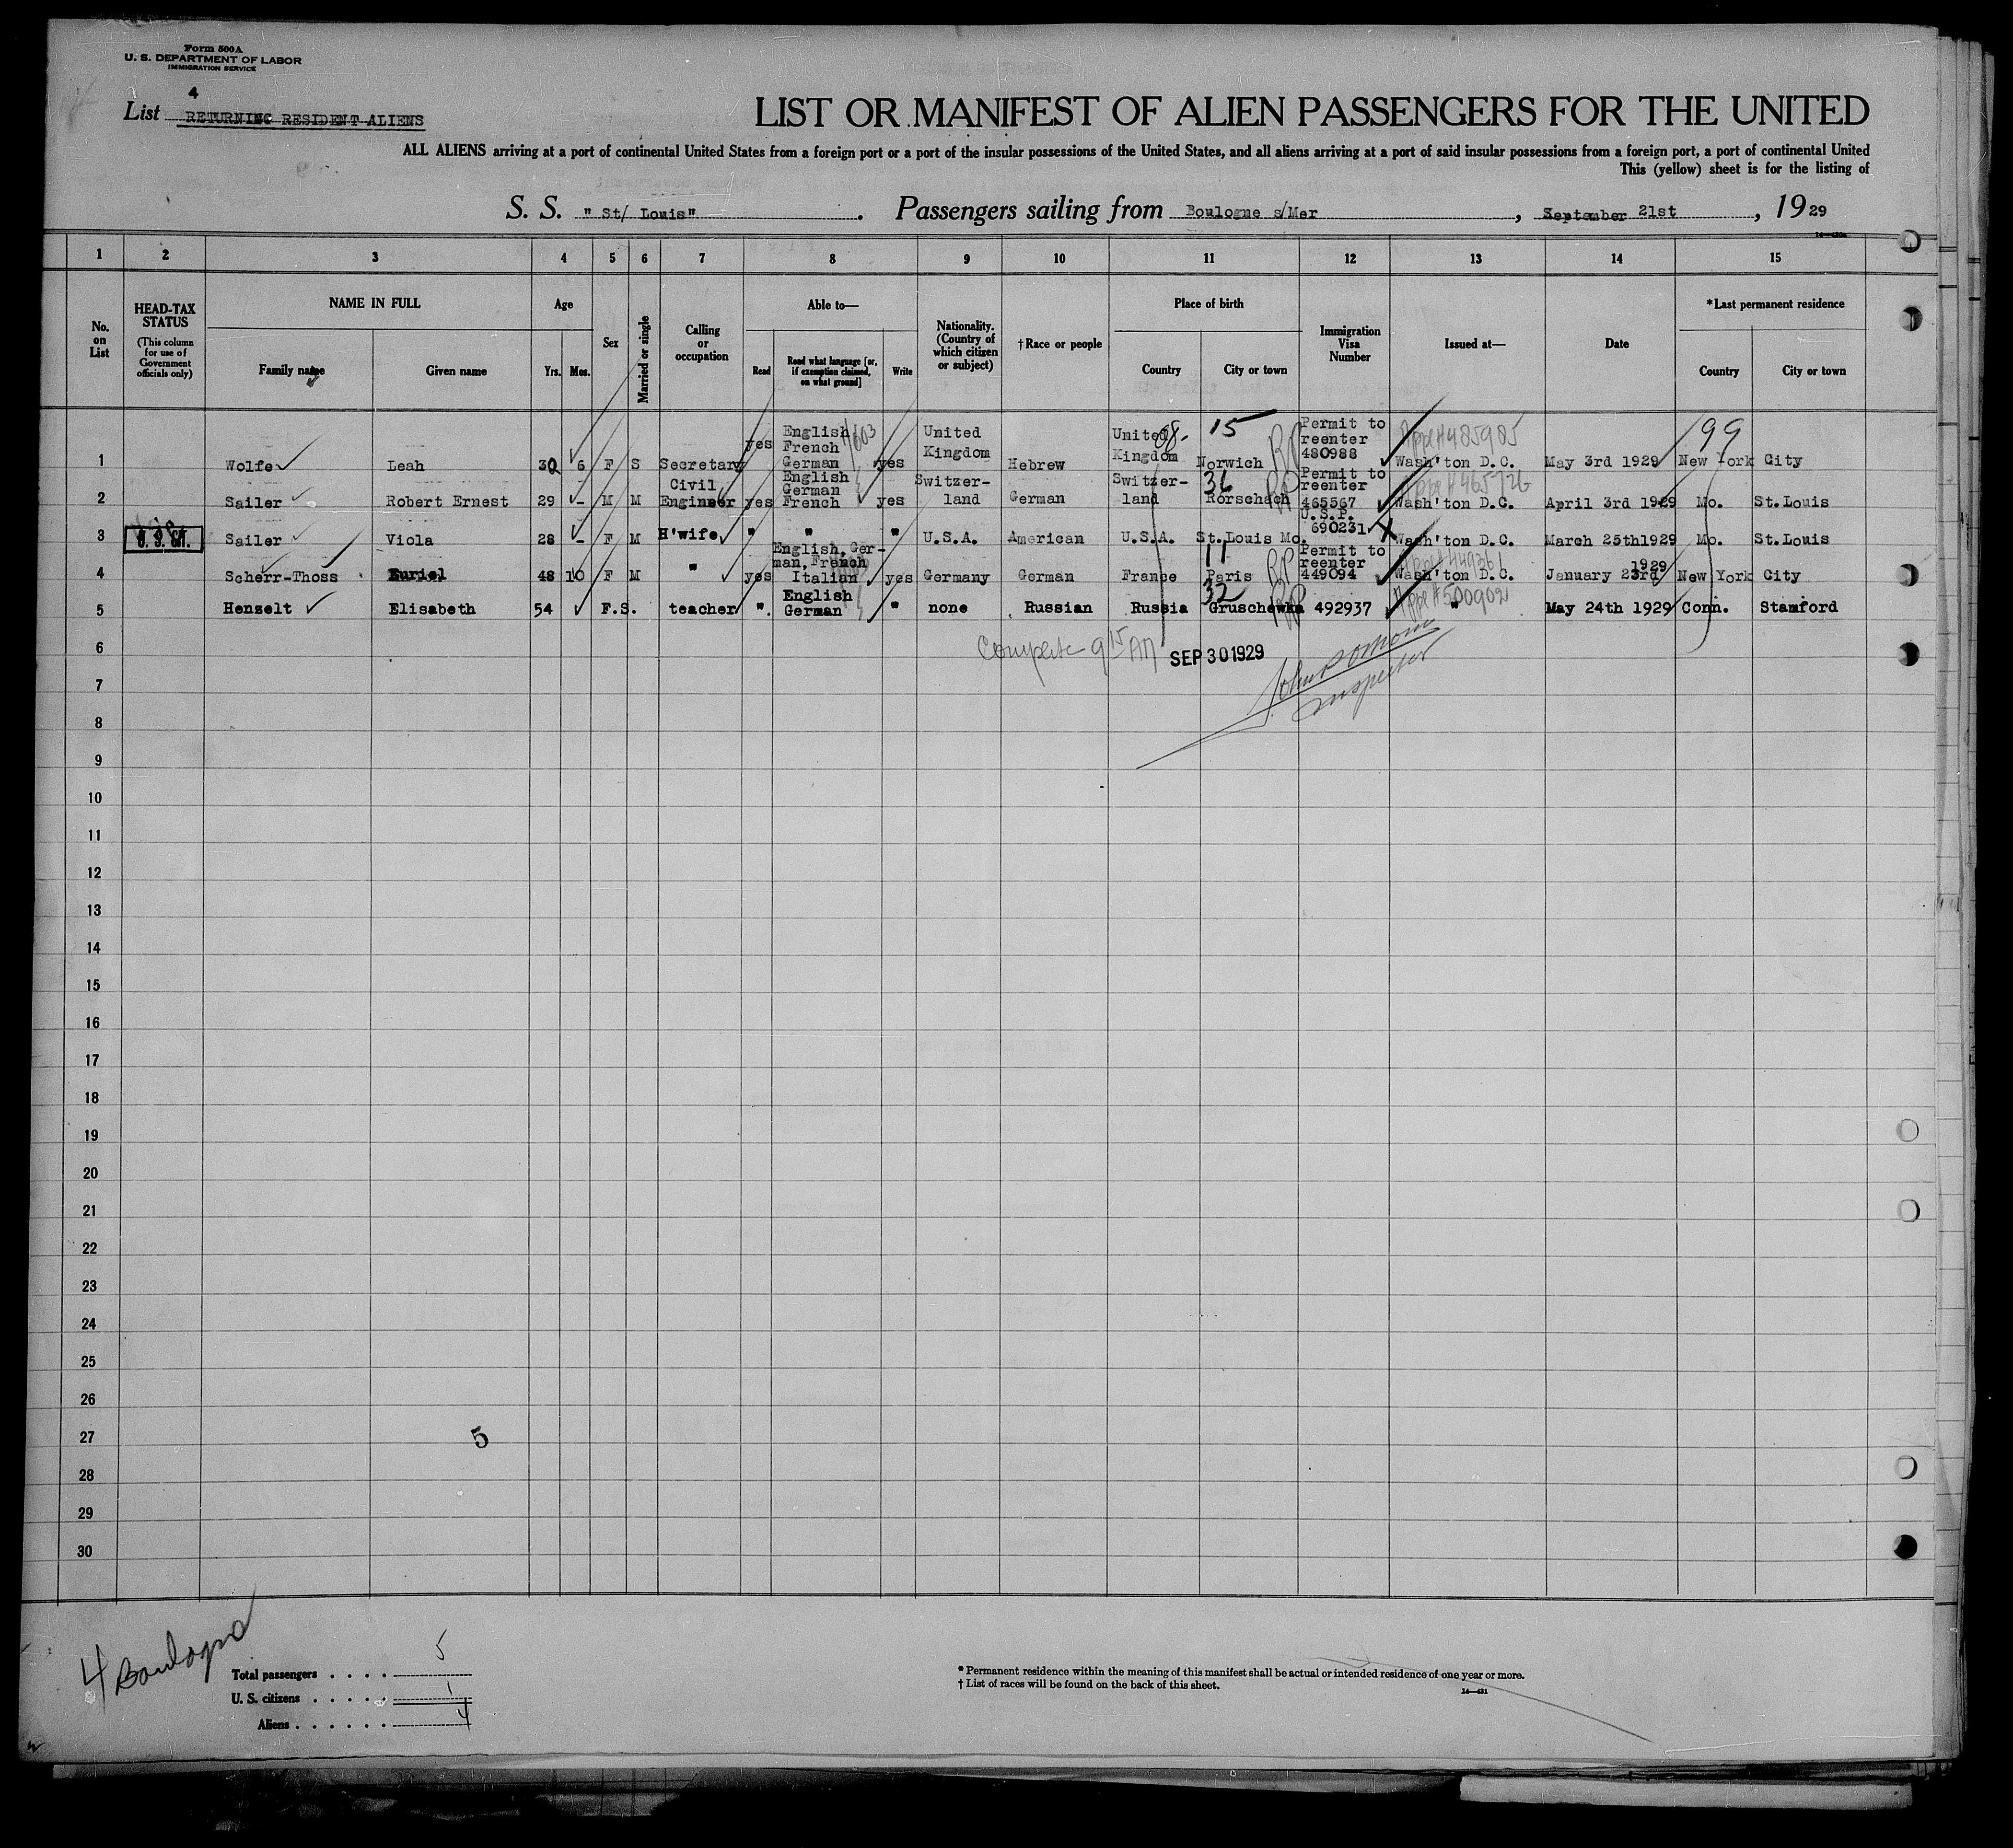 Form 500A
U. S. DEPARTMENT OF LABOR
IMMIGRATION SERVICE
4
List RETURNING RESIDENT ALIENS
LIST OR MANIFEST OF ALIEN PASSENGERS FOR THE UNITED
ALL ALIENS arriving at a port of continental United States from a foreign port or a port of the insular possessions of the United States, and all aliens arriving at a port of said insular possessions from a foreign port, a port of continental United
This (yellow) sheet is for the listing of
S. S. " St/ Louis" . Passengers sailing from Boulogne s/Mer , September 21st , 19 29
1 2 3 4 5 6 7 8 9 10 11 12 13 14 15
No. on List
HEAD-TAX STATUS
(This column for use of Government officials only)
NAME IN FULL
Family name Given name
Age
Yrs. Mos.
Sex
Married or single
Calling or occupation
Able to—
Read Read what language [or, if exemption claimed, on what ground] Write
Nationality. (Country of which citizen or subject)
†Race or people
Place of birth
Country City or town
Immigration Visa Number
Issued at—
Date
*Last permanent residence
Country City or town
1 Wolfe Leah 30 6 F S Secretary yes English French German yes United Kingdom Hebrew United Kingdom Norwich Permit to reenter 480988 Wash'ton D.C. May 3rd 1929 New York City
15 99
2 Sailer Robert Ernest 29 - M M Civil Engineer yes English German French yes Switzer-land German Switzer-land Rorschach Permit to reenter 465567 Wash'ton D.C. April 3rd 1929 Mo. St.Louis
36
3 Sailer Viola 28 - F M H'wife " " " U.S.A. American U.S.A. St.Louis Mo. U.S.P. 690231 Wash'ton D.C. March 25th1929 Mo. St.Louis
4 Scherr-Thoss 48 10 F M " yes English, Ger-man, French Italian yes Germany German France Paris Permit to reenter 449094 Wash'ton D.C. January 23rd 1929 New York City
11
5 Henzelt Elisabeth 54 F.S. teacher ". English German " none Russian Russia Gruschewka 492937 " May 24th 1929 Conn. Stamford
32
6
Complete 9 15 AM SEP 30 1929
Inspector
7
8
9
10
11
12
13
14
15
16
17
18
19
20
21
22
23
24
25
26
27
5
28
29
30
4
Total passengers . . . . 5
U. S. citizens . . . . . 1
Aliens . . . . . . 4
* Permanent residence within the meaning of this manifest shall be actual or intended residence of one year or more.
† List of races will be found on the back of this sheet.
14—421